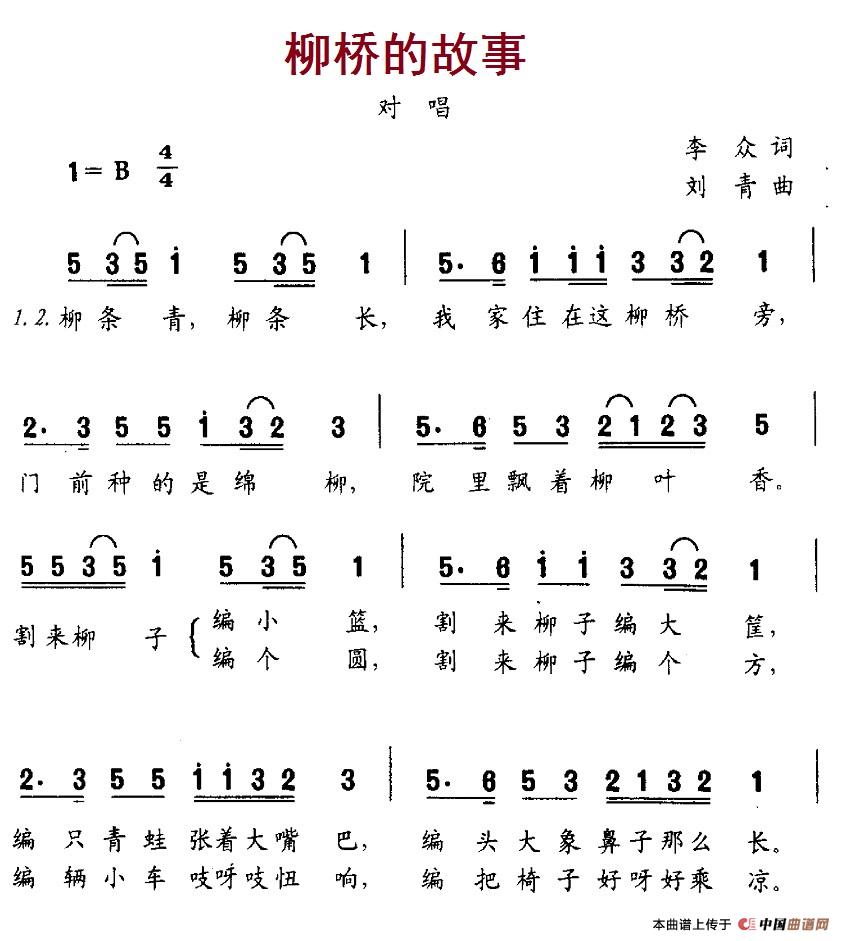 柳桥的故事
对 唱
1=B 4/4
李 众 词
刘 青 曲
5 3 5 i 5 3 5 1 | 5· 6 i i i 3 3 2 1 |
1.2.柳 条 青, 柳 条 长, 我 家 住 在 这 柳 桥 旁,
2· 3 5 5 i 3 2 3 | 5· 6 5 3 2 1 2 3 5 |
门 前 种 的 是 绵 柳, 院 里 飘 着 柳 叶 香。
5 5 3 5 i 5 3 5 1 | 5· 6 i i 3 3 2 1 |
割 来 柳 子 { 编 小 篮, 割 来 柳 子 编 大 筐,
编 个 圆, 割 来 柳 子 编 个 方,
2· 3 5 5 i i 3 2 3 | 5· 6 5 3 2 1 3 2 1 |
编 只 青 蛙 张 着 大 嘴 巴, 编 头 大 象 鼻 子 那 么 长。
编 辆 小 车 吱 呀 吱 扭 响, 编 把 椅 子 好 呀 好 乘 凉。
本曲谱上传于 中国曲谱网